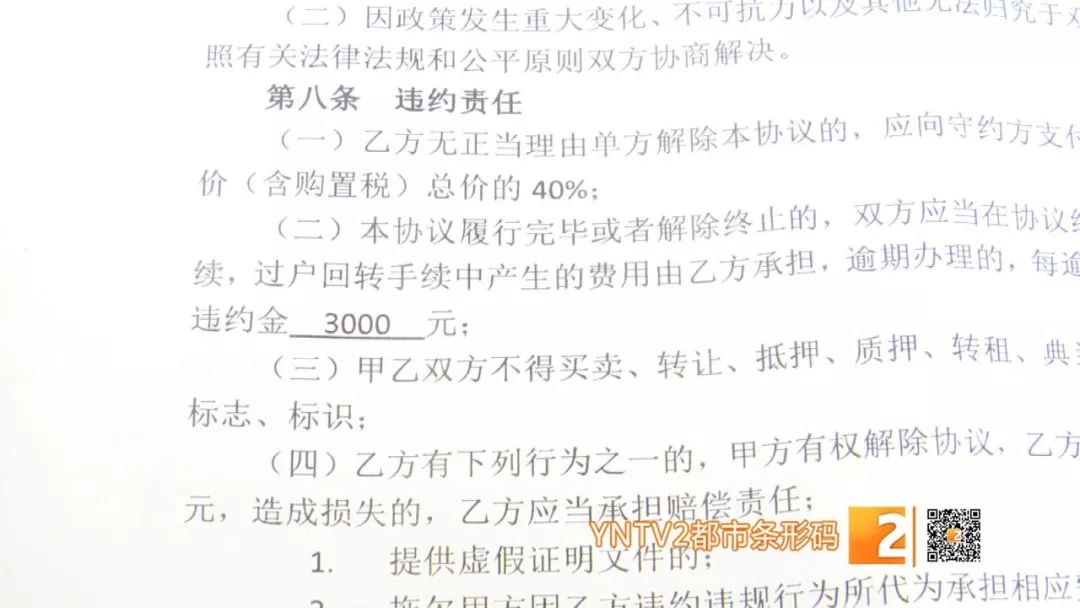 （二）因政策发生重大变化、不可抗力以及其他无法归究于双
照有关法律法规和公平原则双方协商解决。
第八条 违约责任
（一）乙方无正当理由单方解除本协议的，应向守约方支付
价（含购置税）总价的 40%；
（二）本协议履行完毕或者解除终止的，双方应当在协议终
续，过户回转手续中产生的费用由乙方承担，逾期办理的，每逾
违约金 3000 元；
（三）甲乙双方不得买卖、转让、抵押、质押、转租、典当
标志、标识；
（四）乙方有下列行为之一的，甲方有权解除协议，乙方
元，造成损失的，乙方应当承担赔偿责任；
1. 提供虚假证明文件的；
2. 拖欠甲方因乙方违约违规行为所代为承担相应费
YNTV2都市条形码
2